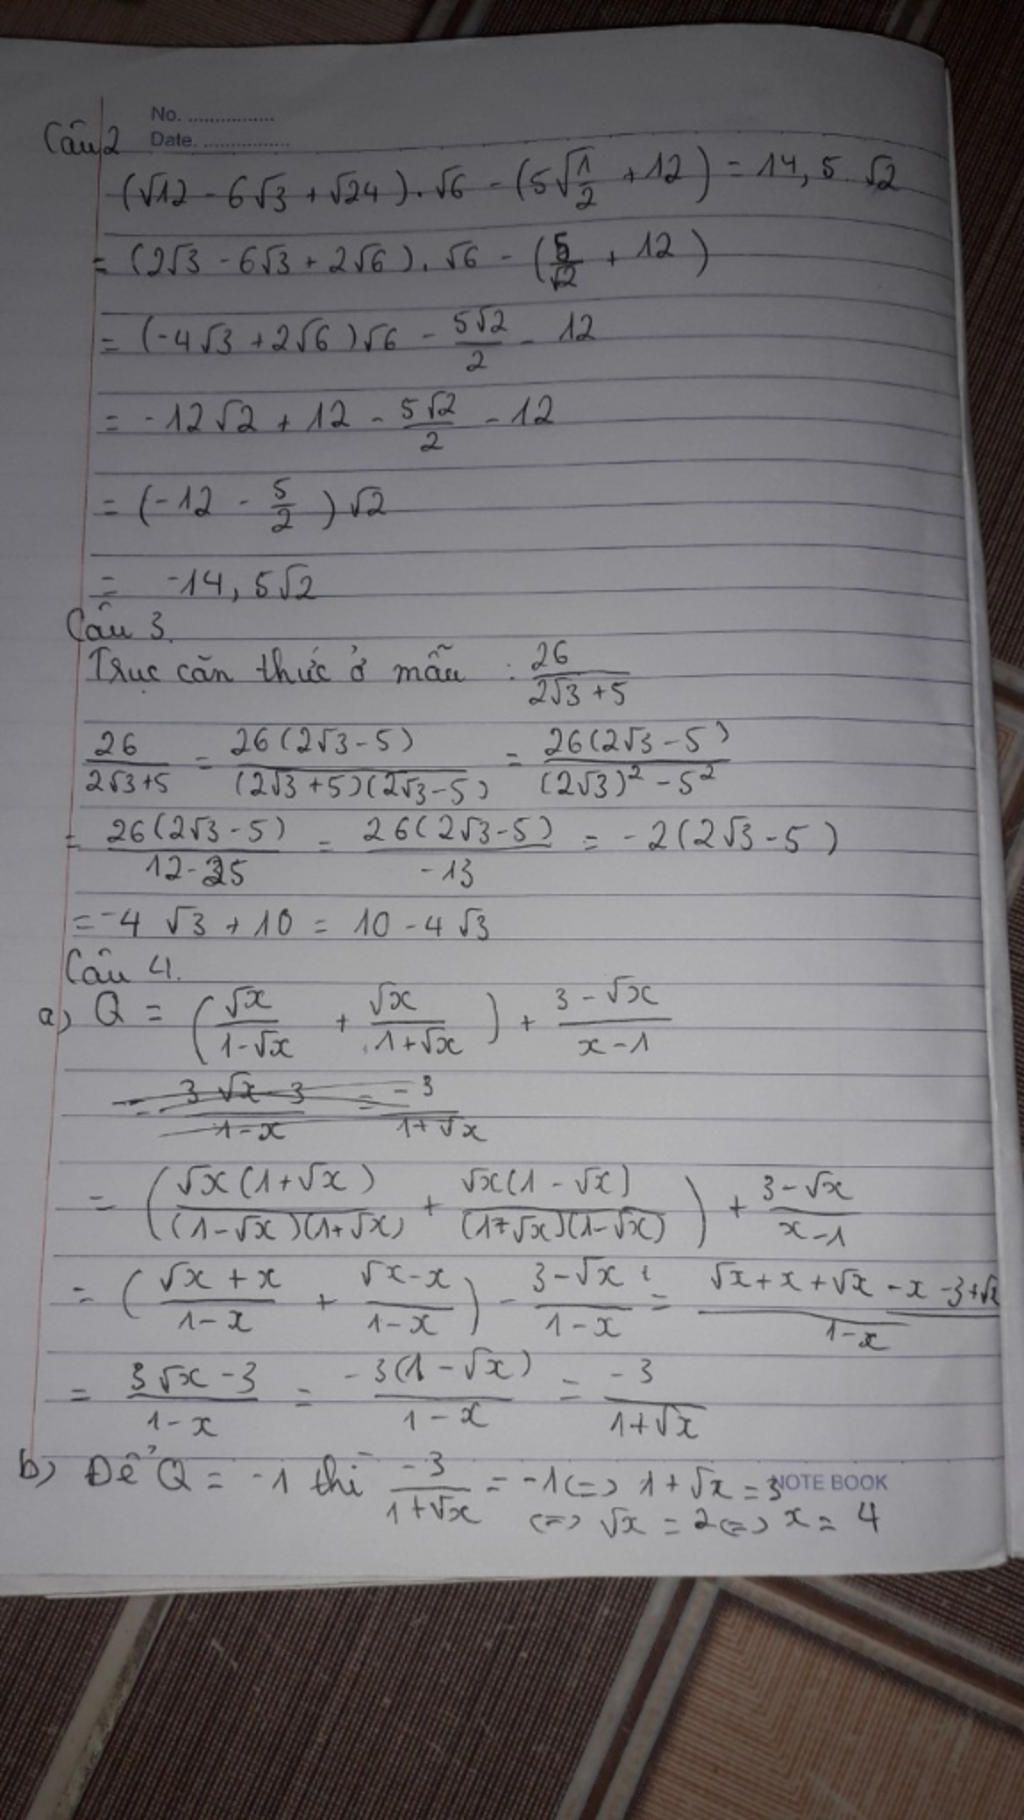 No. ................
Câu 2 Date. ................
(√12 - 6√3 + √24).√6 - (5√1/2 + 12) = 14,5 √2
= (2√3 - 6√3 + 2√6).√6 - (5/√2 + 12)
= (-4√3 + 2√6)√6 - 5√2/2 - 12
= -12√2 + 12 - 5√2/2 - 12
= (-12 - 5/2)√2
= -14,5√2
Câu 3.
Trục căn thức ở mẫu : 26/(2√3+5)
26/(2√3+5) = 26(2√3-5)/((2√3+5)(2√3-5)) = 26(2√3-5)/((2√3)² - 5²)
= 26(2√3-5)/(12-25) = 26(2√3-5)/-13 = -2(2√3-5)
= -4√3 + 10 = 10 - 4√3
Câu 4.
a) Q = (√x/(1-√x) + √x/(1+√x)) + (3-√x)/(x-1)
- (3√x-3)/(1-x) = -3/(1+√x)
= (√x(1+√x)/((1-√x)(1+√x)) + √x(1-√x)/((1+√x)(1-√x))) + (3-√x)/(x-1)
= ((√x+x)/(1-x) + (√x-x)/(1-x)) - (3-√x)/(1-x) = (√x+x+√x-x-3+√x)/(1-x)
= (3√x-3)/(1-x) = -3(1-√x)/(1-x) = -3/(1+√x)
b) Để Q = -1 thì -3/(1+√x) = -1 <=> 1+√x = 3 NOTE BOOK
<=> √x = 2 <=> x = 4